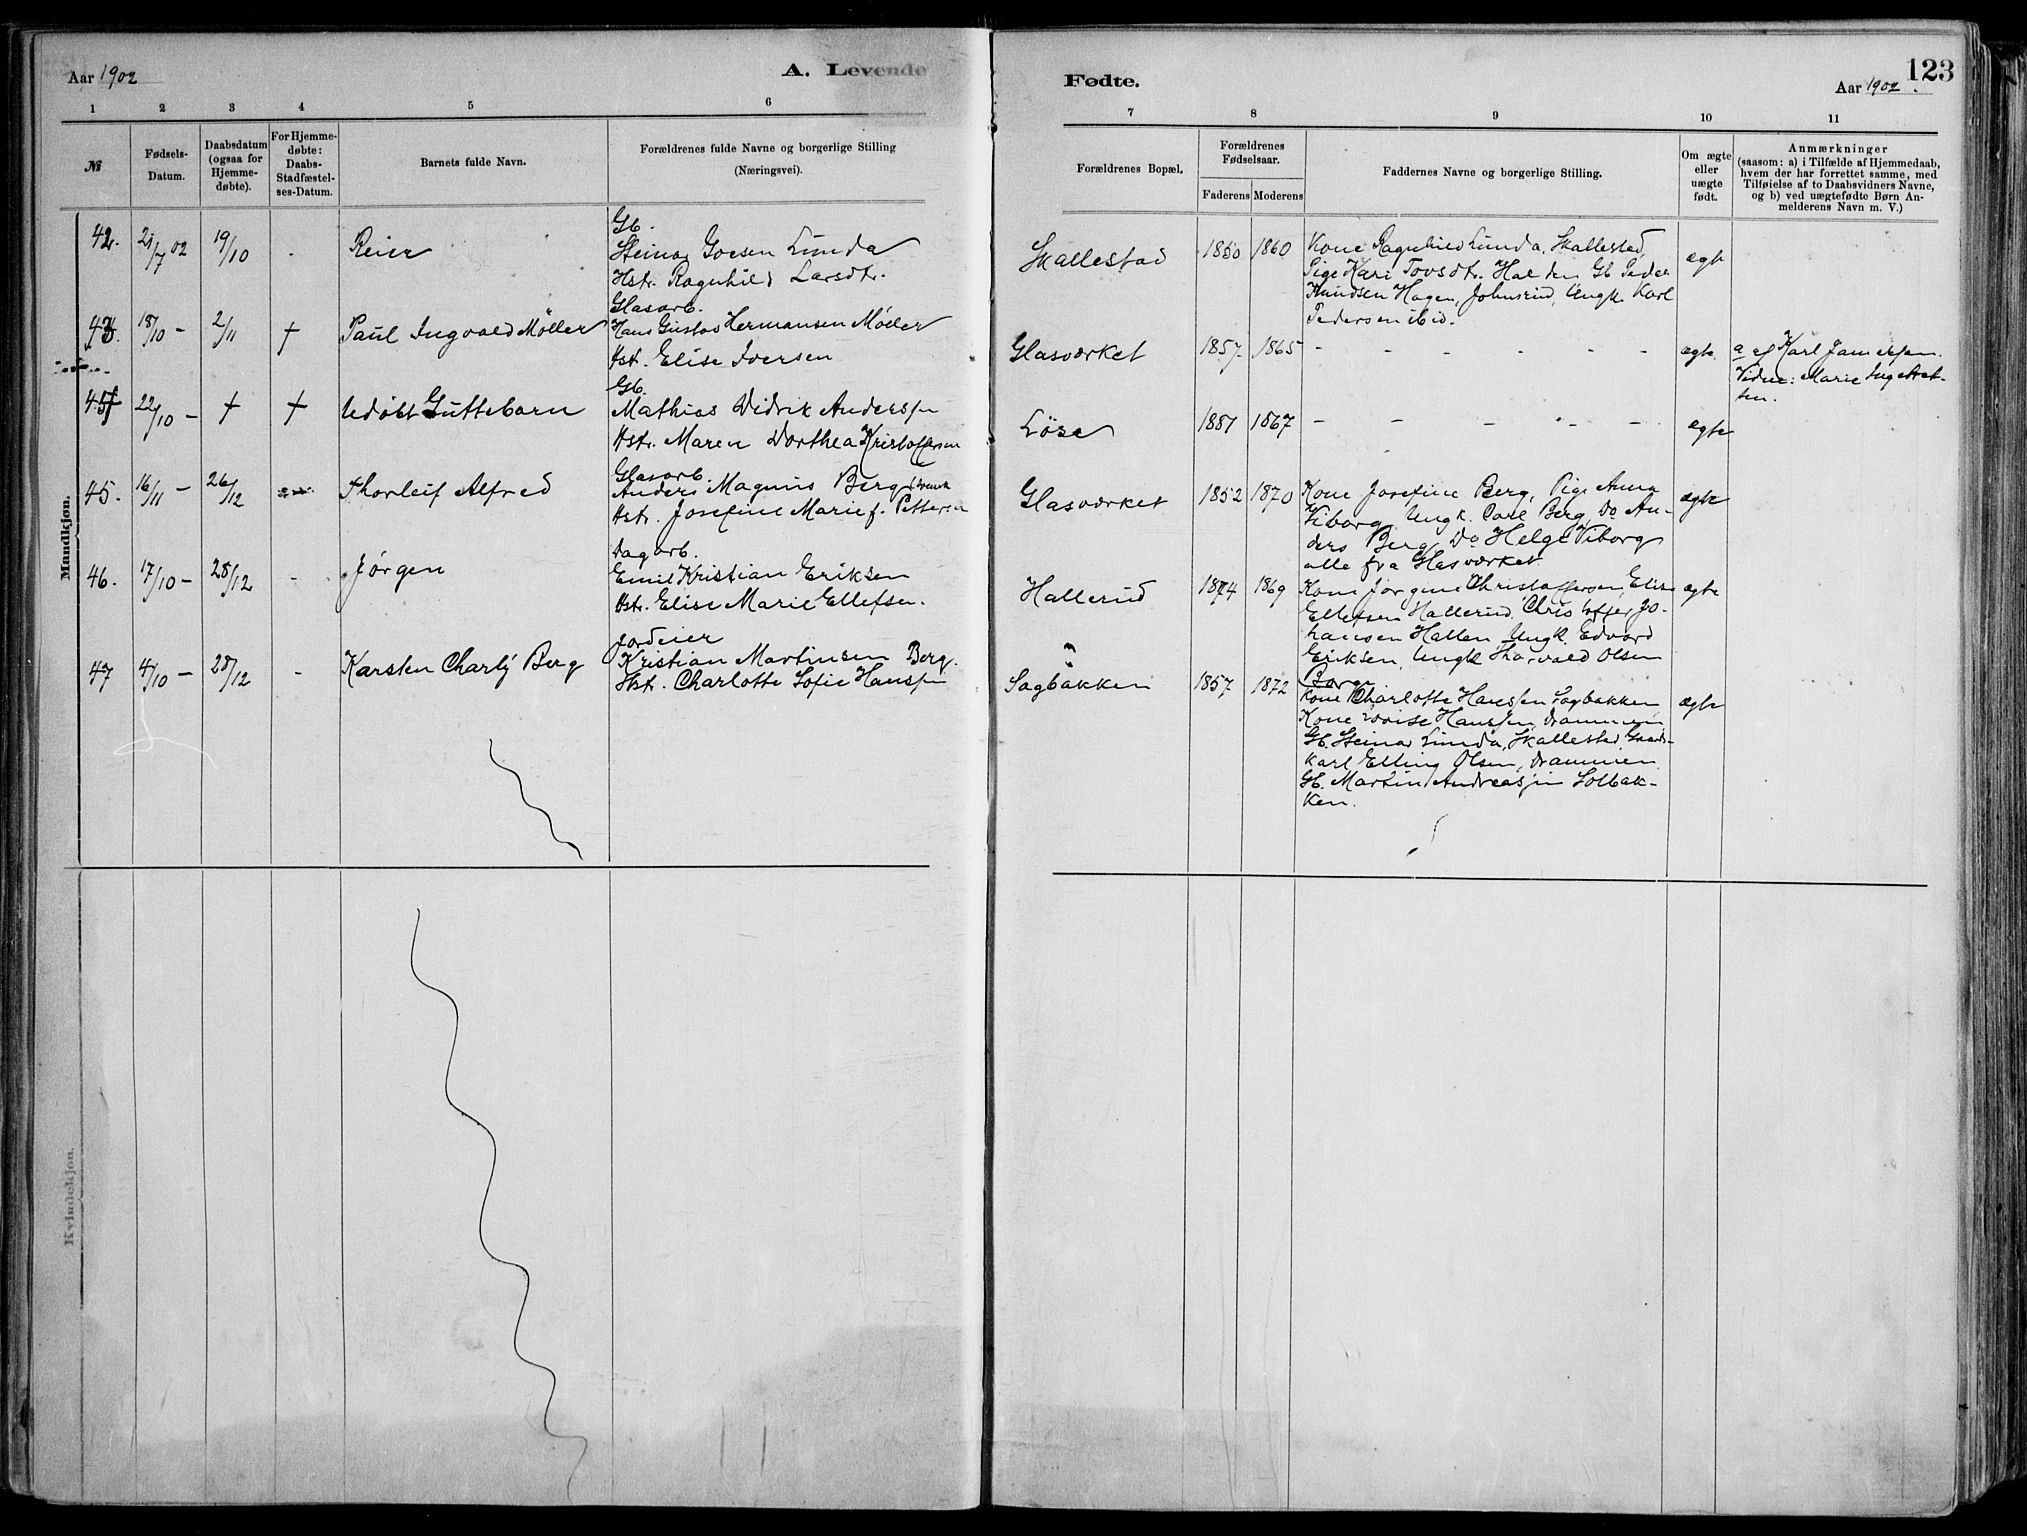 Aar 1902
A. Levende
1 2 3 4 5 6
№
Fødsels-
Datum.
Daabsdatum
(ogsaa for
Hjemme-
døbte).
For Hjemme-
døbte:
Daabs-
Stadfæstel-
ses-Datum.
Barnets fulde Navn.
Forældrenes fulde Navne og borgerlige Stilling
(Næringsvei).
Mandkjøn.
42. 21/7 02 19/10 - Reier
Gb.
Steinar Lunda
Hstr. Ragnhild Larsdtr.
43. 18/10 - 2/11 + Paul Ingvald Møller
Glasarb.
Hans Gustav Hermansen Møller
Hst. Elise Iversen
22/10 - + + Udøbt Guttebarn
Gb.
Mathias Didrik Anderssen
Hstr. Maren Dorthea Kristoffersen
45. 16/11 - 26/12 Thorleif Alfred
Glasarb.
Anders Magnus Berg
Hstr. Josefine Marie f. Pettersen
46. 17/10 - 28/12 - Jørgen
Dagarb.
Emil Kristian Eriksen
Hstr. Elise Marie Ellefsen.
47 4/10 - 28/12 - Karsten Charly Berg
Jordeier
Kristian Martinsen Berg.
Hst. Charlotte Sofie Hanssen
Kvindekjøn.
Fødte.
123
Aar 1902.
7 8 9 10 11
Forældrenes Bopæl.
Forældrenes
Fødselsaar.
Faderens Moderens
Faddernes Navne og borgerlige Stilling.
Om ægte
eller
uægte
født.
Anmærkninger
(saasom: a) i Tilfælde af Hjemmedaab,
hvem der har forrettet samme, med
Tilføielse af to Daabsvidners Navne,
og b) ved uægtefødte Børn An-
melderens Navn m. V.)
Skallestad 1860 ægte
Kone Ragnhild Lunda, Skallestad,
Pige Kari Tovsdtr. Gb Peder
Knudsen Hagen, Johnsrud, Ungk. Karl
Pedersen ibid.
Glasværket 1857 1865 - - - - - - ægte
a af Karl
Vidne: Marie
1867 - - - - - ægte
Glasværket 1852 1870 ægte
Kone Josefine Berg, Pige Anna
Viborg, Ungk. Carl Berg, Do An-
ders Berg, Do Helge Viborg
alle fra Glasværket
Hallerud 1874 1869 ægte
Kone Jørgine Christoffersen, Elise
Ellefsen Hallerud, Jo-
hansen Hallen, Ungk Edvard
Eriksen, Ungk Harvald Olsen
Sagbakken 1857 1872 ægte
Kone Charlotte Hanssen Sagbakken,
Kone Lovise Hanssen, Drammen
Gb. Steinar Lunda, Skallestad,
karl Elling Olsen, Drammen
Gb. Martin Andreassen Solbak-
ken.